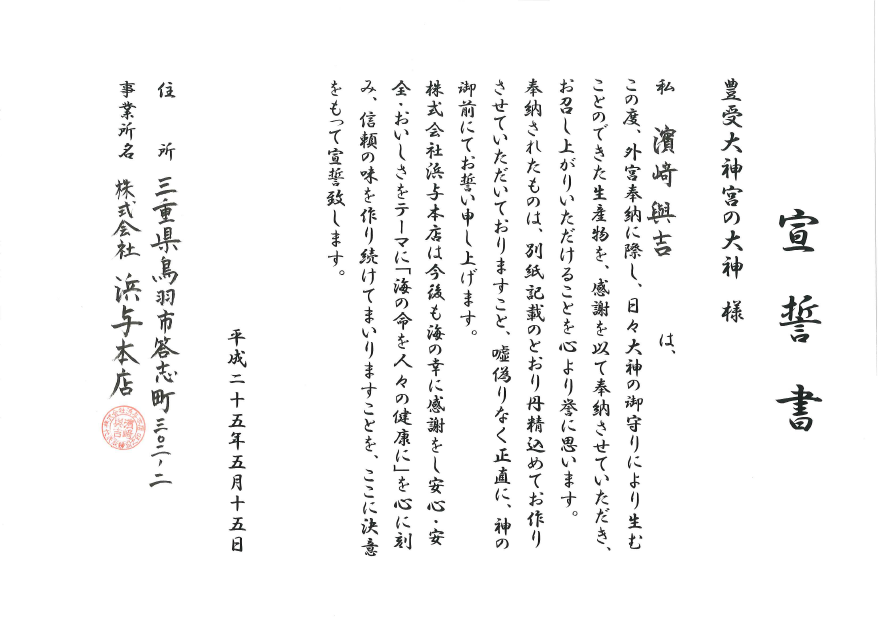 宣誓書
豊受大神宮の大神 様
私 濱﨑與吉 は、
この度、外宮奉納に際し、日々大神の御守りにより生む
ことのできた生産物を、感謝を以て奉納させていただき、
お召し上がりいただけることを心より誉に思います。
奉納されたものは、別紙記載のとおり丹精込めてお作り
させていただいておりますこと、嘘偽りなく正直に、神の
御前にてお誓い申し上げます。
株式会社浜与本店は今後も海の幸に感謝をし安心・安
全・おいしさをテーマに「海の命を人々の健康に」を心に刻
み、信頼の味を作り続けてまいりますことを、ここに決意
をもって宣誓致します。
平成二十五年五月十五日
住所 三重県鳥羽市答志町三〇二-二
事業所名 株式会社 浜与本店